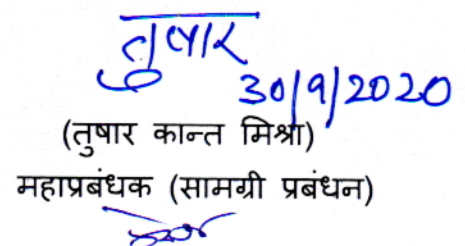 तुषार
30/9/2020
(तुषार कान्त मिश्रा)
महाप्रबंधक (सामग्री प्रबंधन)